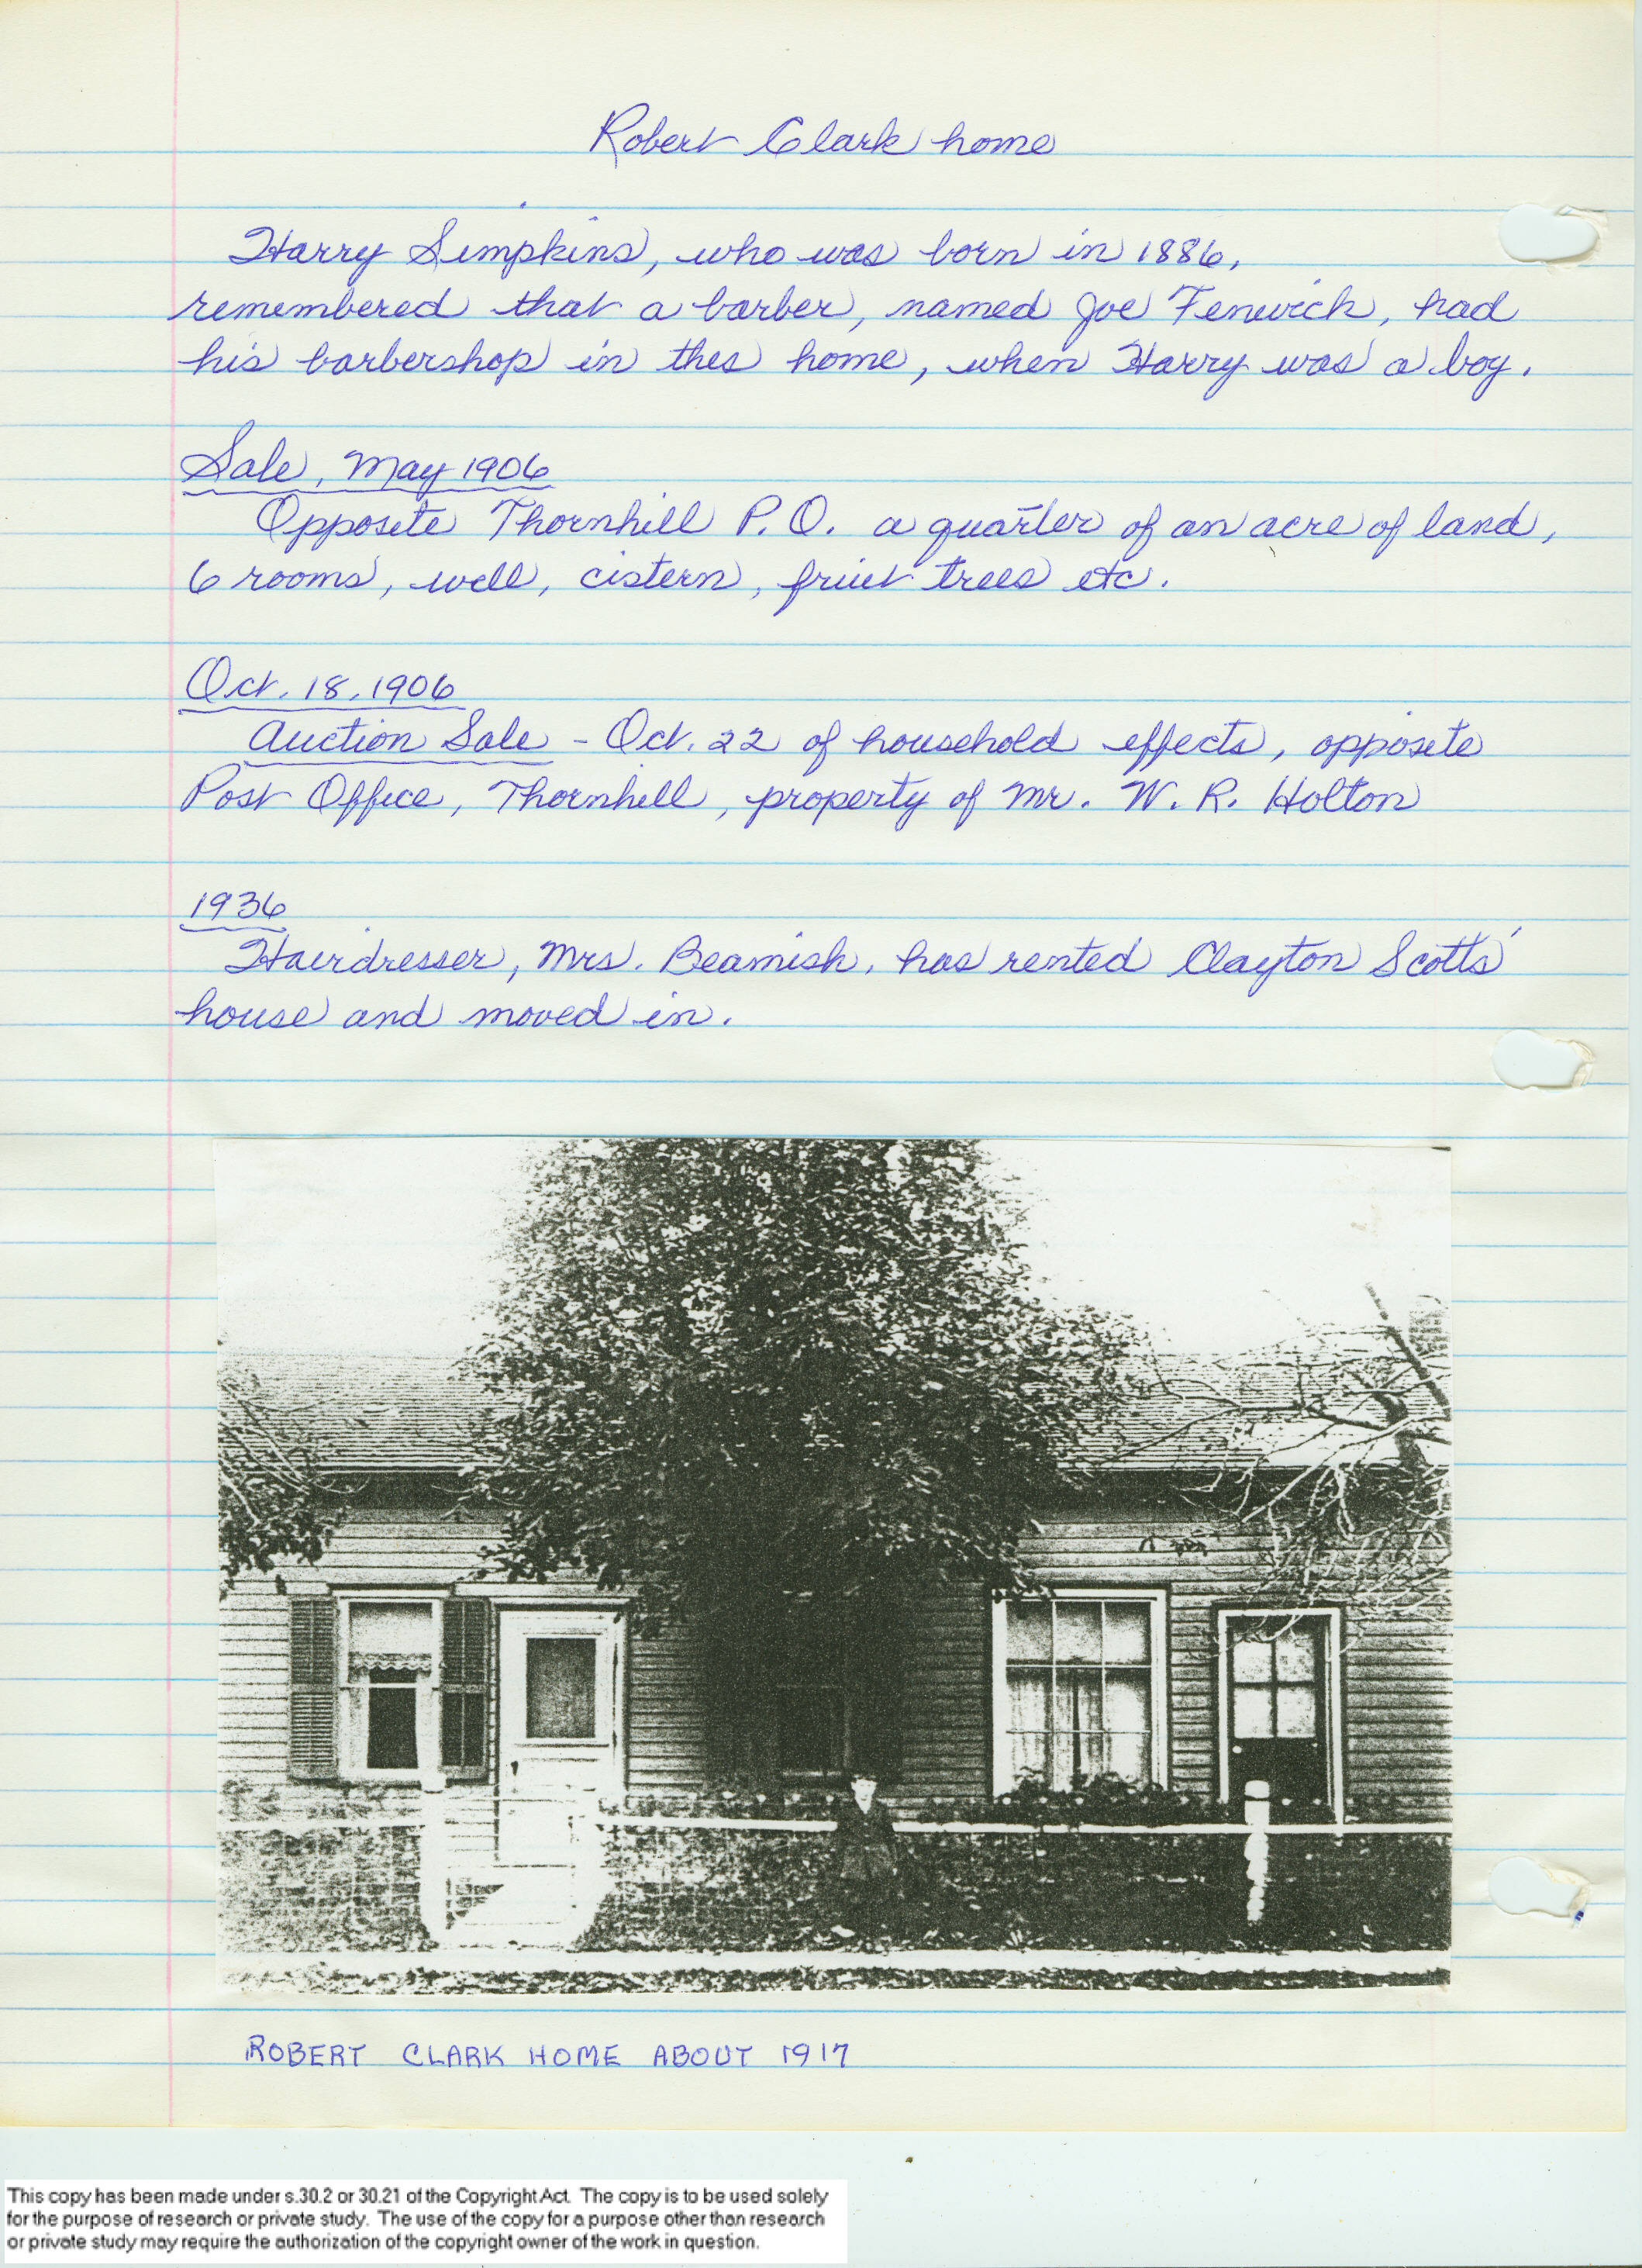 Robert Clark home
Harry Simpkins, who was born in 1886,
remembered that a barber, named Joe Fenwick, had
his barbershop in this home, when Harry was a boy.
Sale, May 1906
Opposite Thornhill P.O. a quarter of an acre of land,
6 rooms, well, cistern, fruit trees etc.
Oct. 18, 1906
Auction Sale - Oct. 22 of household effects, opposite
Post Office, Thornhill, property of Mr. W. R. Holton
1936
Hairdresser, Mrs. Beamish, has rented Clayton Scotts'
house and moved in.
ROBERT CLARK HOME ABOUT 1917
This copy has been made under s.30.2 or 30.21 of the Copyright Act. The copy is to be used solely
for the purpose of research or private study. The use of the copy for a purpose other than research
or private study may require the authorization of the copyright owner of the work in question.